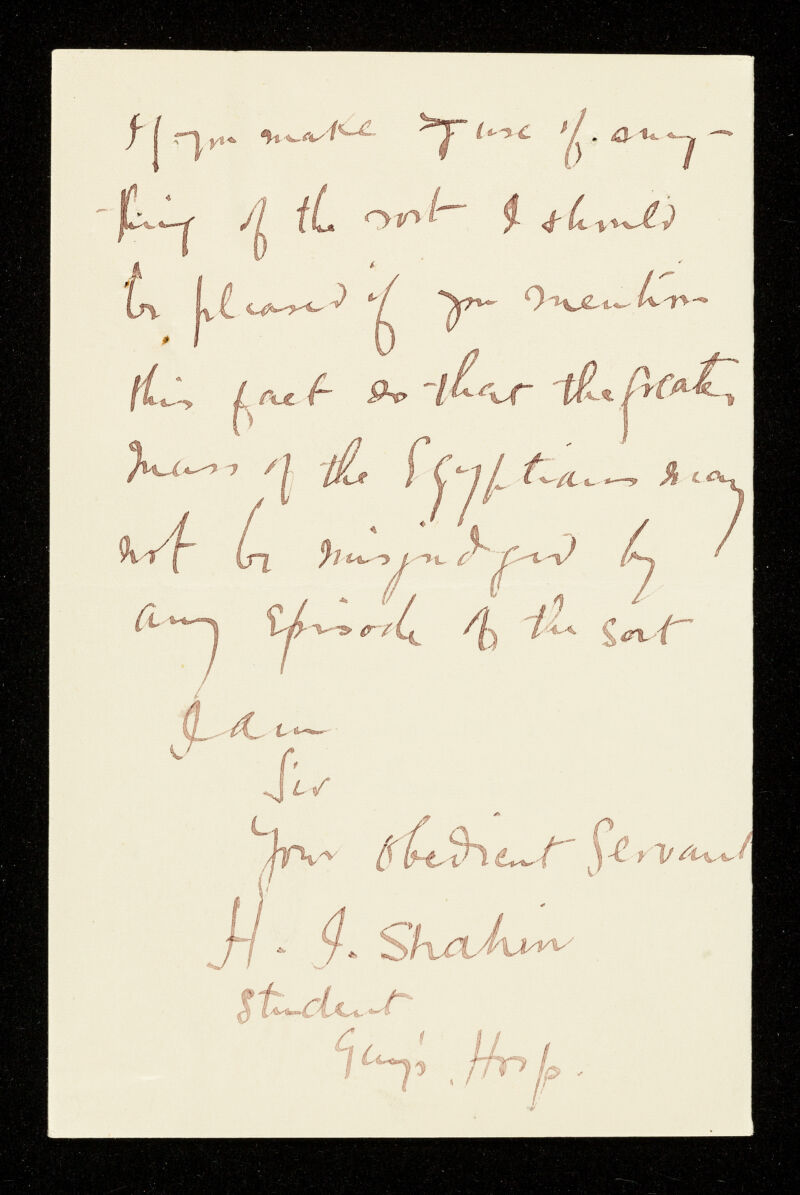 If you make use of any-
thing of the sort I should
be pleased if you mention
this fact so that the greater
mass of the Egyptians may
not be misjudged by
any episode of the sort
I am
Sir
Your obedient Servant
H. I. Shahin
student
Guy's Hosp.